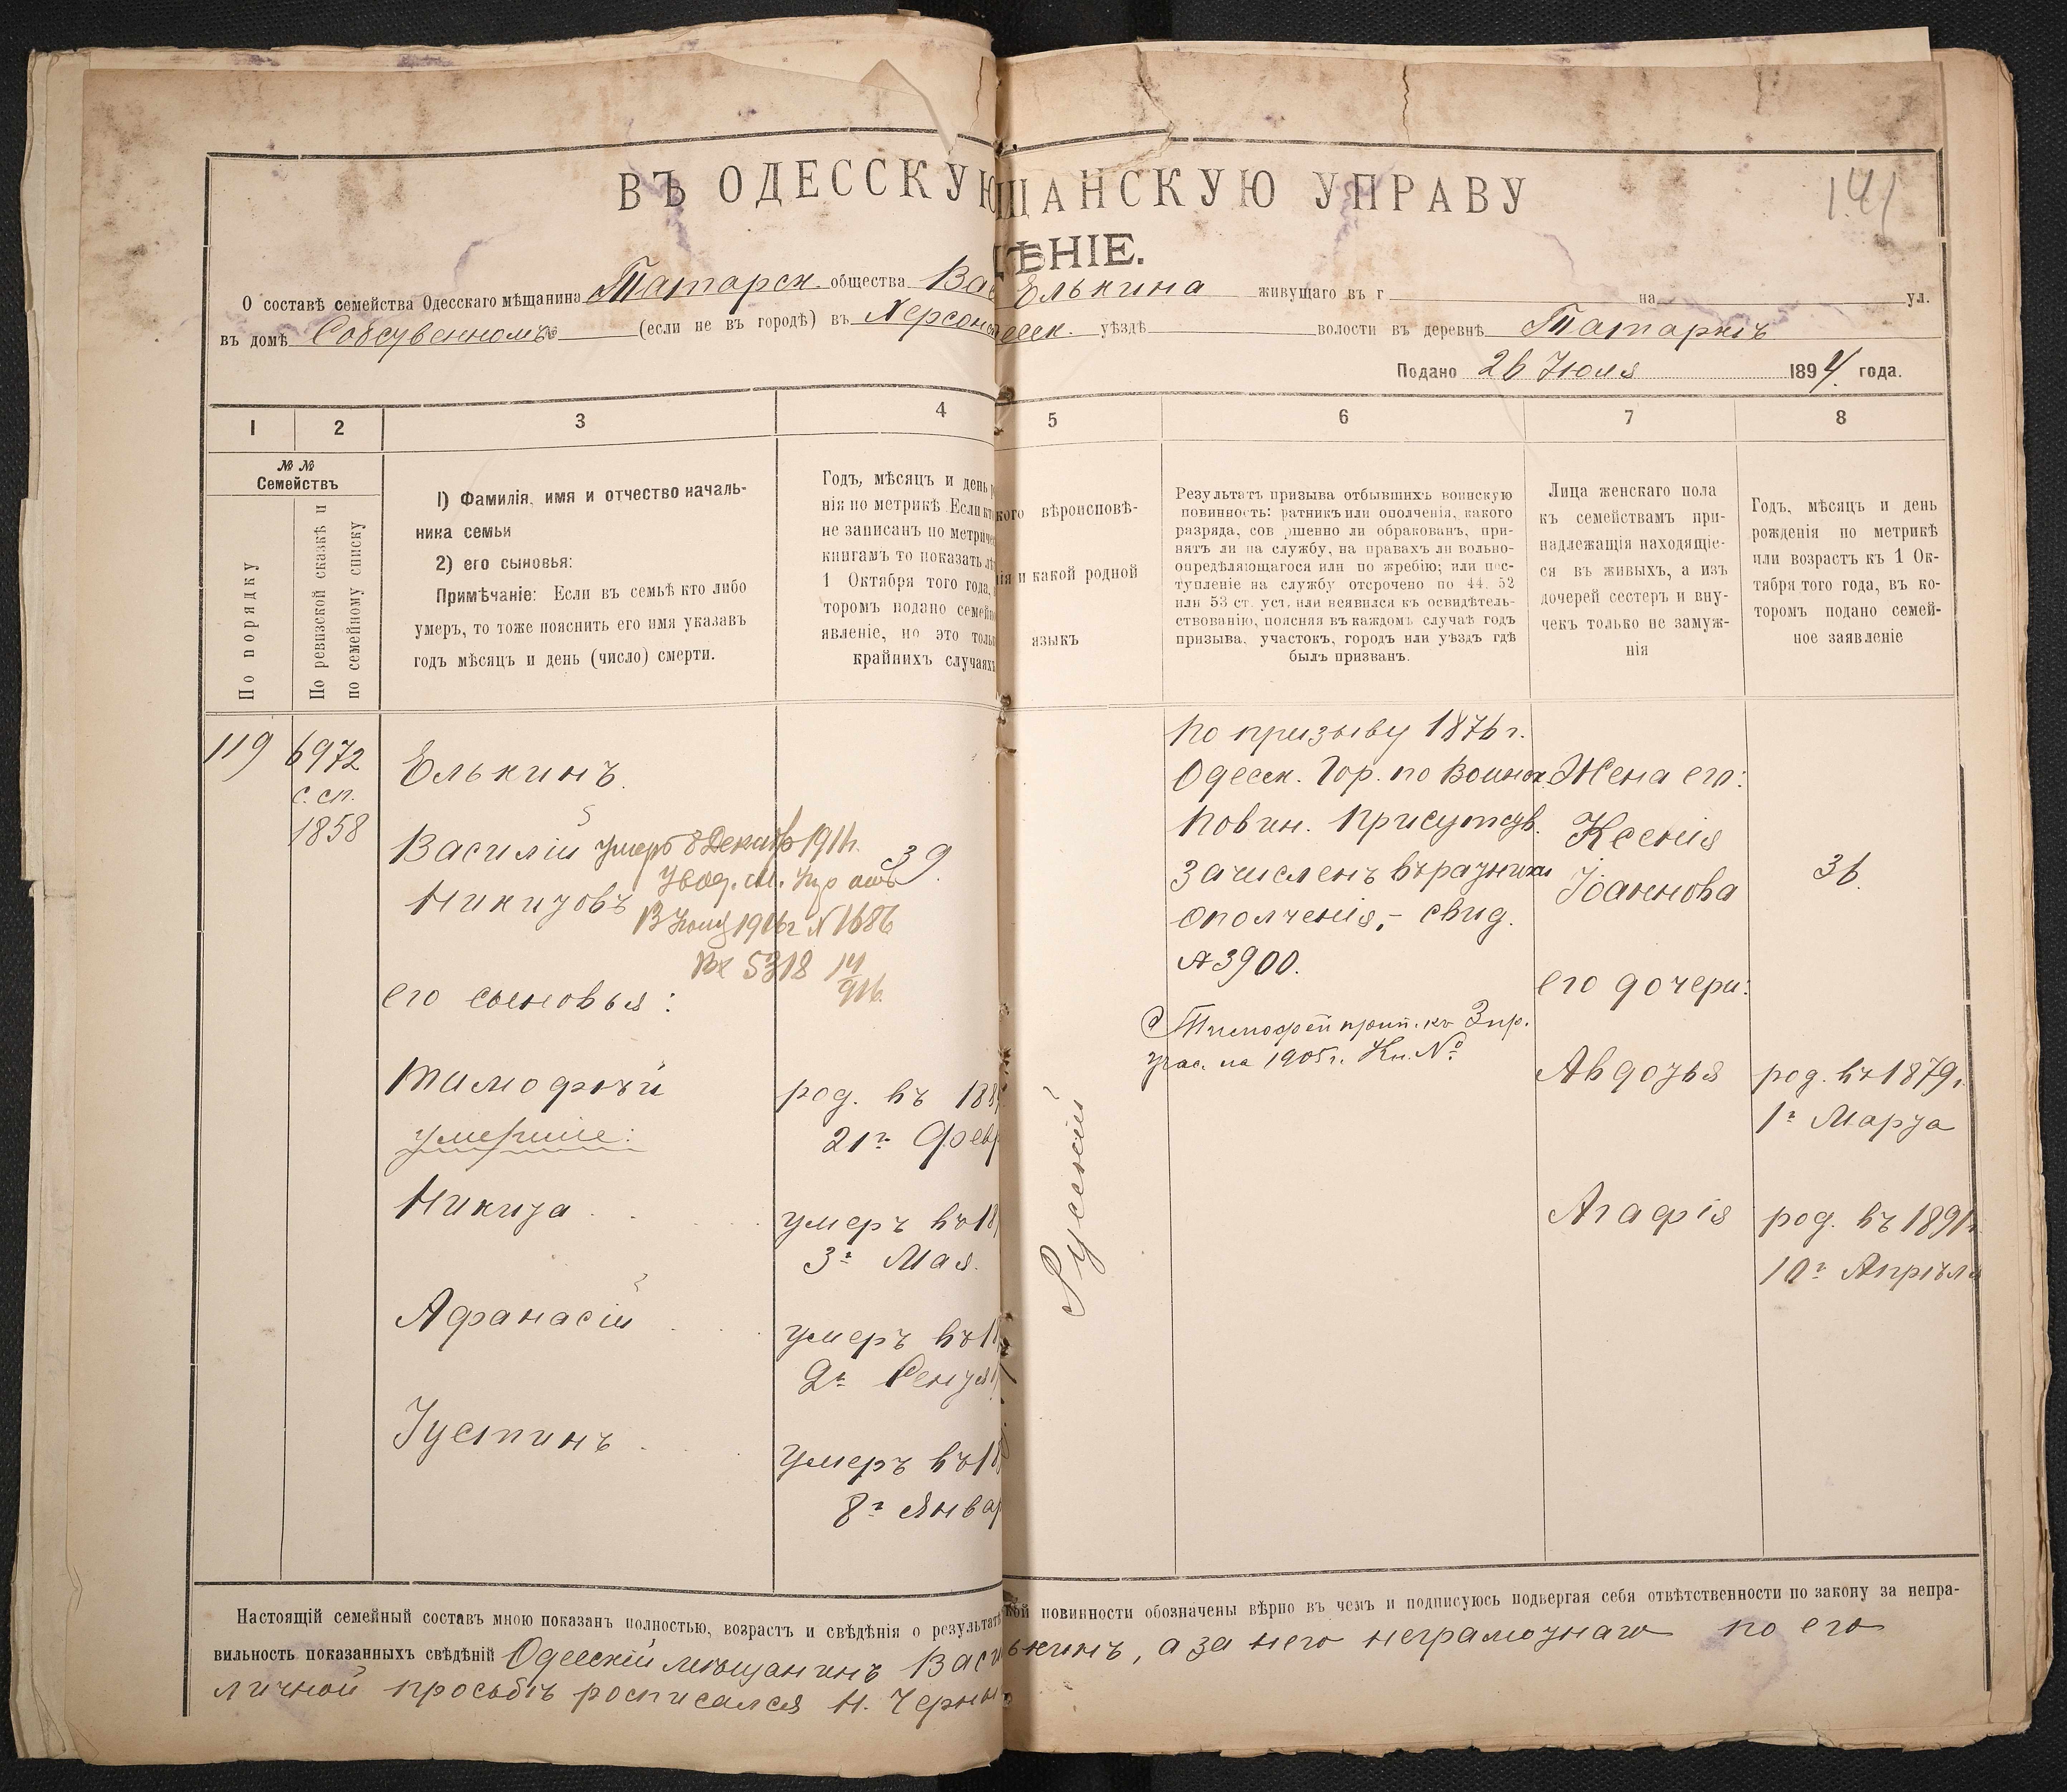 ВЪ ОДЕССКУЮ ЩАНСКУЮ УПРАВУ
141
ѢНІЕ.
О составѣ семейства Одесскаго мѣщанина Татарск. общества Вас Елькина живущаго въ г на ул.
въ домѣ Собственномъ (если не въ городѣ) въ Херсонс десск. уѣздѣ волости въ деревнѣ Татаркѣ
Подано 26 Юоля 1894 года.
1 2 3 4 5 6 7 8
№ № Семействъ
По порядку
По ревизской сказкѣ и
по семейному списку
1) Фамилія, имя и отчество началь-
ника семьи
2) его сыновья:
Примѣчаніе: Если въ семьѣ кто либо
умеръ, то тоже пояснить его имя указавъ
годъ мѣсяцъ и день (число) смерти.
Годъ, мѣсяцъ и день
нія по метрикѣ. Если кто
не записанъ по метриче
книгамъ то показать лѣ
1 Октября того года,
торомъ подано семейн
явленіе, но это толь
крайнихъ случаяхъ
кого вѣроисповѣ-
нія и какой родной
языкъ
Результатъ призыва отбывшихъ воинскую
повинность: ратникъ или ополченія, какого
разряда, сов ршенно ли обракованъ, при-
нятъ ли на службу, на правахъ ли вольно-
опредѣляющагося или по жребію; или пос-
тупленіе на службу отсрочено по 44. 52
или 53 ст. уст. или неявился къ освидѣтель-
ствованію, поясняя въ каждомъ случаѣ годъ
призыва, участокъ, городъ или уѣздъ гдѣ
былъ призванъ.
Лица женскаго пола
къ семействамъ при-
надлежащія находящіе-
ся въ живыхъ, а изъ
дочерей сестеръ и вну-
чекъ только не замуж-
нія
Годъ, мѣсяцъ и день
рожденія по метрикѣ
или возрастъ къ 1 Ок-
тября того года, въ ко-
торомъ подано семей-
ное заявленіе
119
6972
с. сп.
1858
Елькинъ
Василій
умеръ 8 Декабр 191
Никитовъ
№ 1686
Вх 5318 14/916
39
его сыновья:
Тимофѣй
род. въ 188
21го Февр
умершие:
Никита
умеръ въ 18
3го Мая.
Афанасій
умеръ въ 1
2го Генуя
Іустинъ
умеръ въ 18
8го Январ
Русскій
По призыву 1876 г.
Одесск. Гор. по Воинск.
Повин. Присутств.
Зачисленъ въ ратники
ополченія, - свид.
№ 3900.
Тимофей прип. къ 3 пр.
учас. на 1905 г. Кн. №
Жена его:
Ксенія
Іоаннова
36.
его дочери:
Авдотья
род. въ 1879 г.
1го Марта
Агафія
род. въ 1891 г.
10го Апрѣля
Настоящій семейный составъ мною показанъ полностью, возрастъ и свѣдѣнія о результатѣ кой повинности обозначены вѣрно въ чемъ и подписуюсь подвергая себя отвѣтственности по закону за непра-
вильность показанныхъ свѣдѣній Одесскій мѣщанинъ Васи ькинъ, а за него неграмотнаго по его
личной просьбѣ росписался Н. Черны